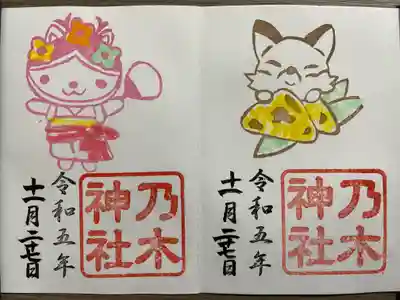 乃木
神社
令和五年
十一月二七日
乃木
神社
令和五年
十一月二七日